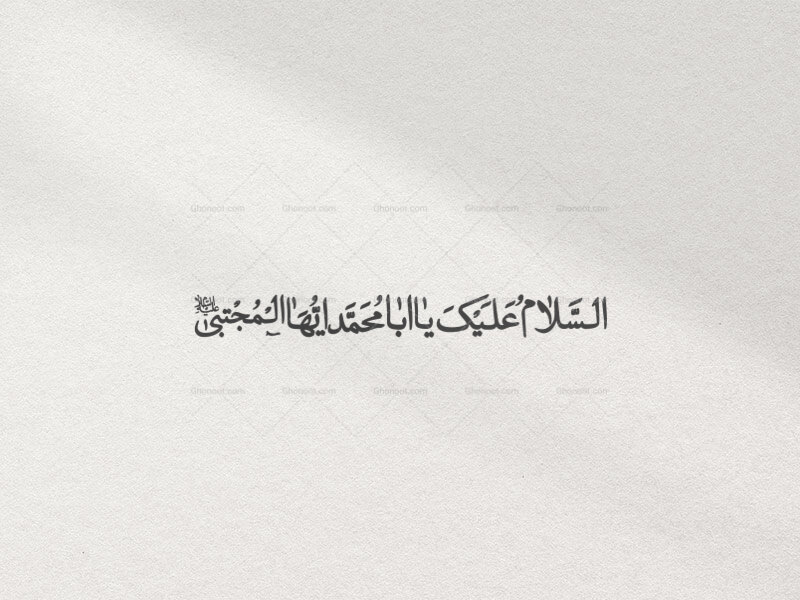 Ghonoot.com Ghonoot.com Ghonoot.com Ghonoot.com Ghonoot.com
السَّلامُ عَلَیکَ یا اَبا مُحَمَّد اَیُّهَا الْمُجْتَبیٰ
Ghonoot.com Ghonoot.com Ghonoot.com Ghonoot.com Ghonoot.com